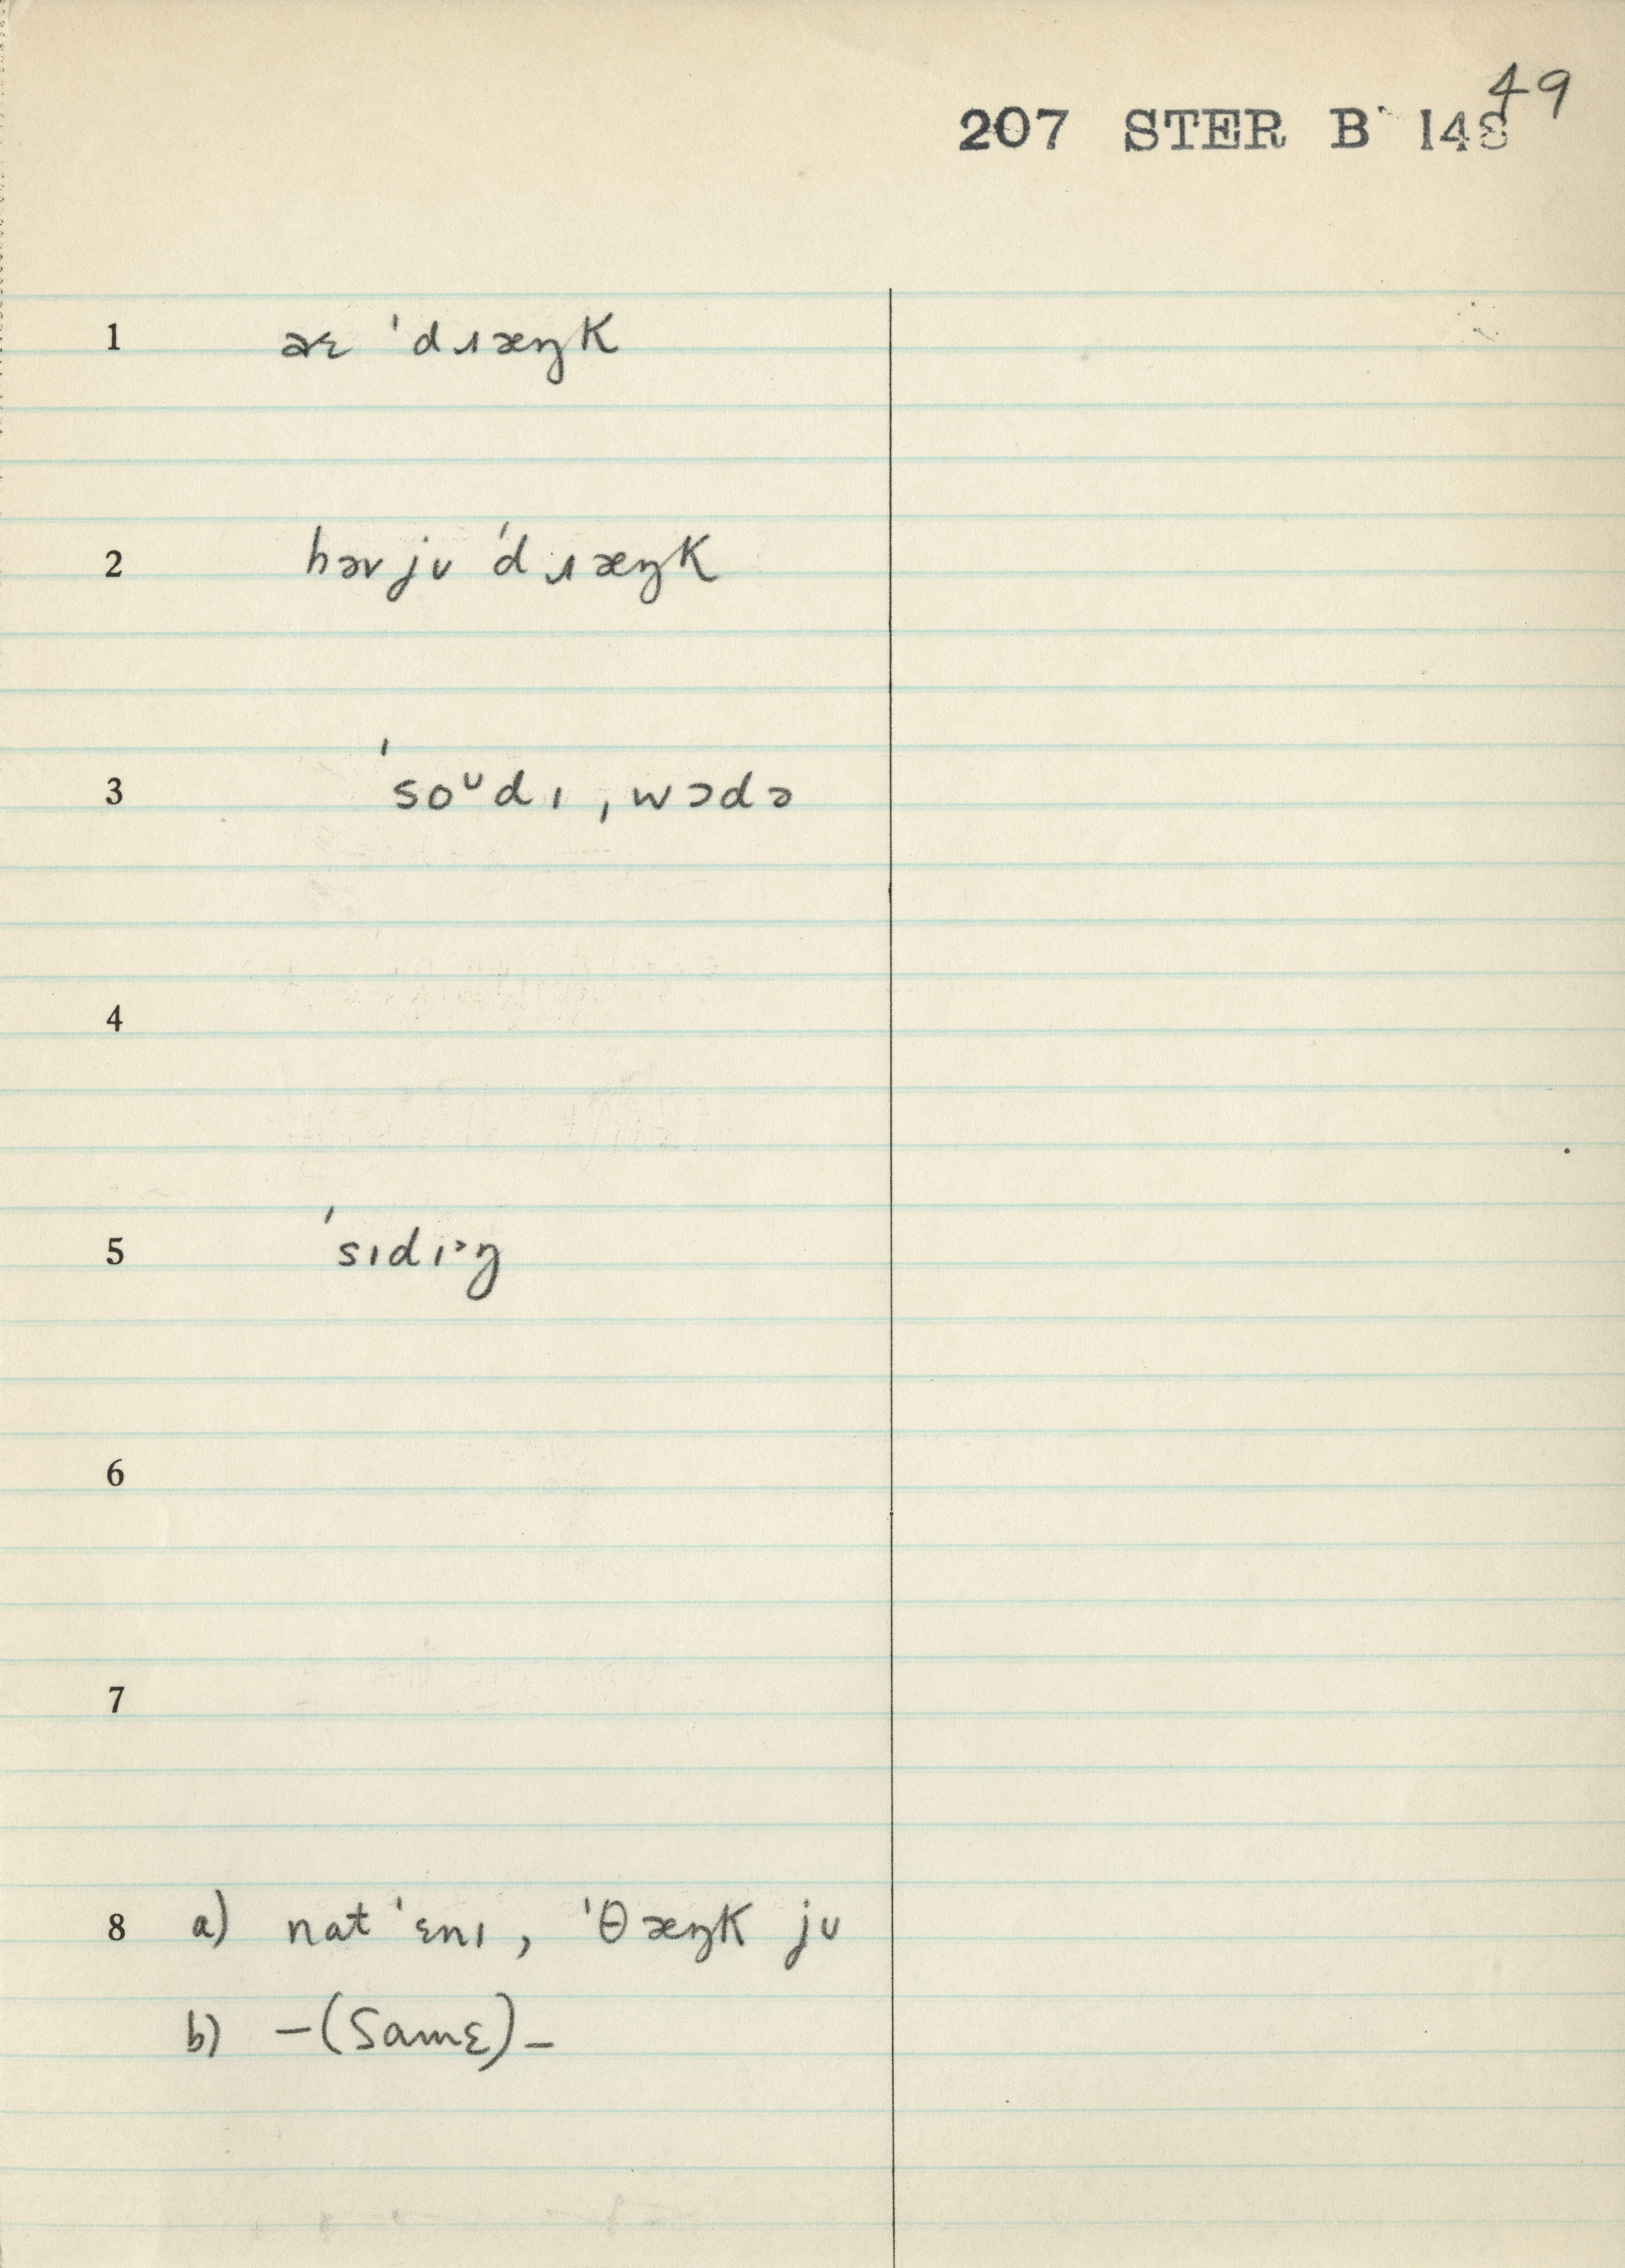 49
207 STER B 148
1 aɛ ˈdɹæŋk
2 həv jʊ ˈdɹæŋk
3 ˈsoᶸdɪ ˌwɔdə
4
5 ˈsɪdɪ˃ŋ
6
7
8 a) nat ˈɛnɪ, ˈθæŋk jʊ
b) –(Same)–